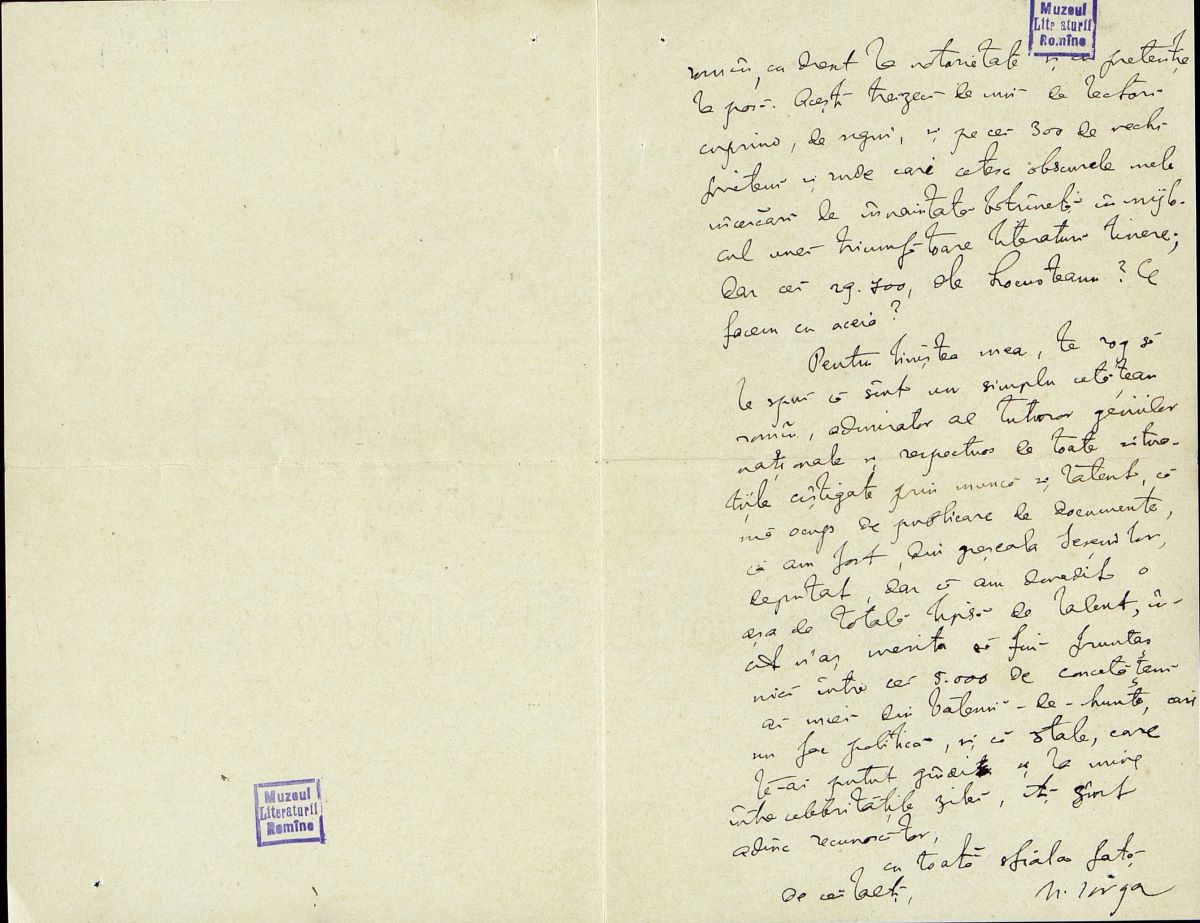 Muzeul
Literaturii
Romîne
romîn, cu drept la notorietate și cu pretenție
la poză. Acești treizeci de mii de lectori
cuprind, de sigur, și pe cei 300 de vechi
prieteni și rude cari cetesc obscurele mele
încercări de înnaintată bătrîneță în mijlo-
cul unei triumfătoare literaturi tinere;
dar cei 29.700, die Locusteanu? Ce
facem cu aceia?
Pentru liniștea mea, te rog să
le spui că sînt un simplu cetățean
romîn, admirator al tuturor geniilor
naționale și respectuos de toate situa-
țiile cîștigate prin muncă și talent, că
mă ocup de publicare de documente,
că am fost, din greșeala ieșenilor,
deputat, dar că am dovedit o
așa de totală lipsă de talent, în-
cît n'aș merita să fiu fruntaș
nici între cei 5.000 de concetățeni
ai miei din Vălenii-de-Munte, cari
nu fac politică, și că d-tale, care
te-ai putut gîndi și la mine
între celebritățile zilei, îți sînt
adînc recunoscător,
cu toată sfiala față
de ceilalți,
N. Iorga
Muzeul
Literaturii
Romîne